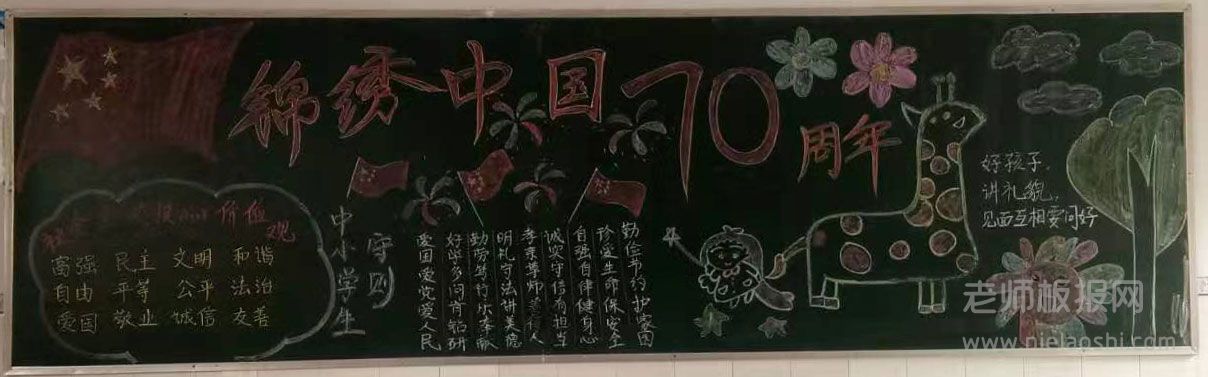 锦绣中国70周年
价值观
富强 民主 文明 和谐
自由 平等 公平 法治
爱国 敬业 诚信 友善
中小学生
守则
爱国爱党爱人民
好学多问肯钻研
勤劳笃行乐奉献
明礼守法讲美德
孝亲尊师善待人
诚实守信有担当
自强自律健身心
珍爱生命保安全
勤俭节约护家园
好孩子,
讲礼貌,
见面互相要问好
老师板报网
www.nielaoshi.com